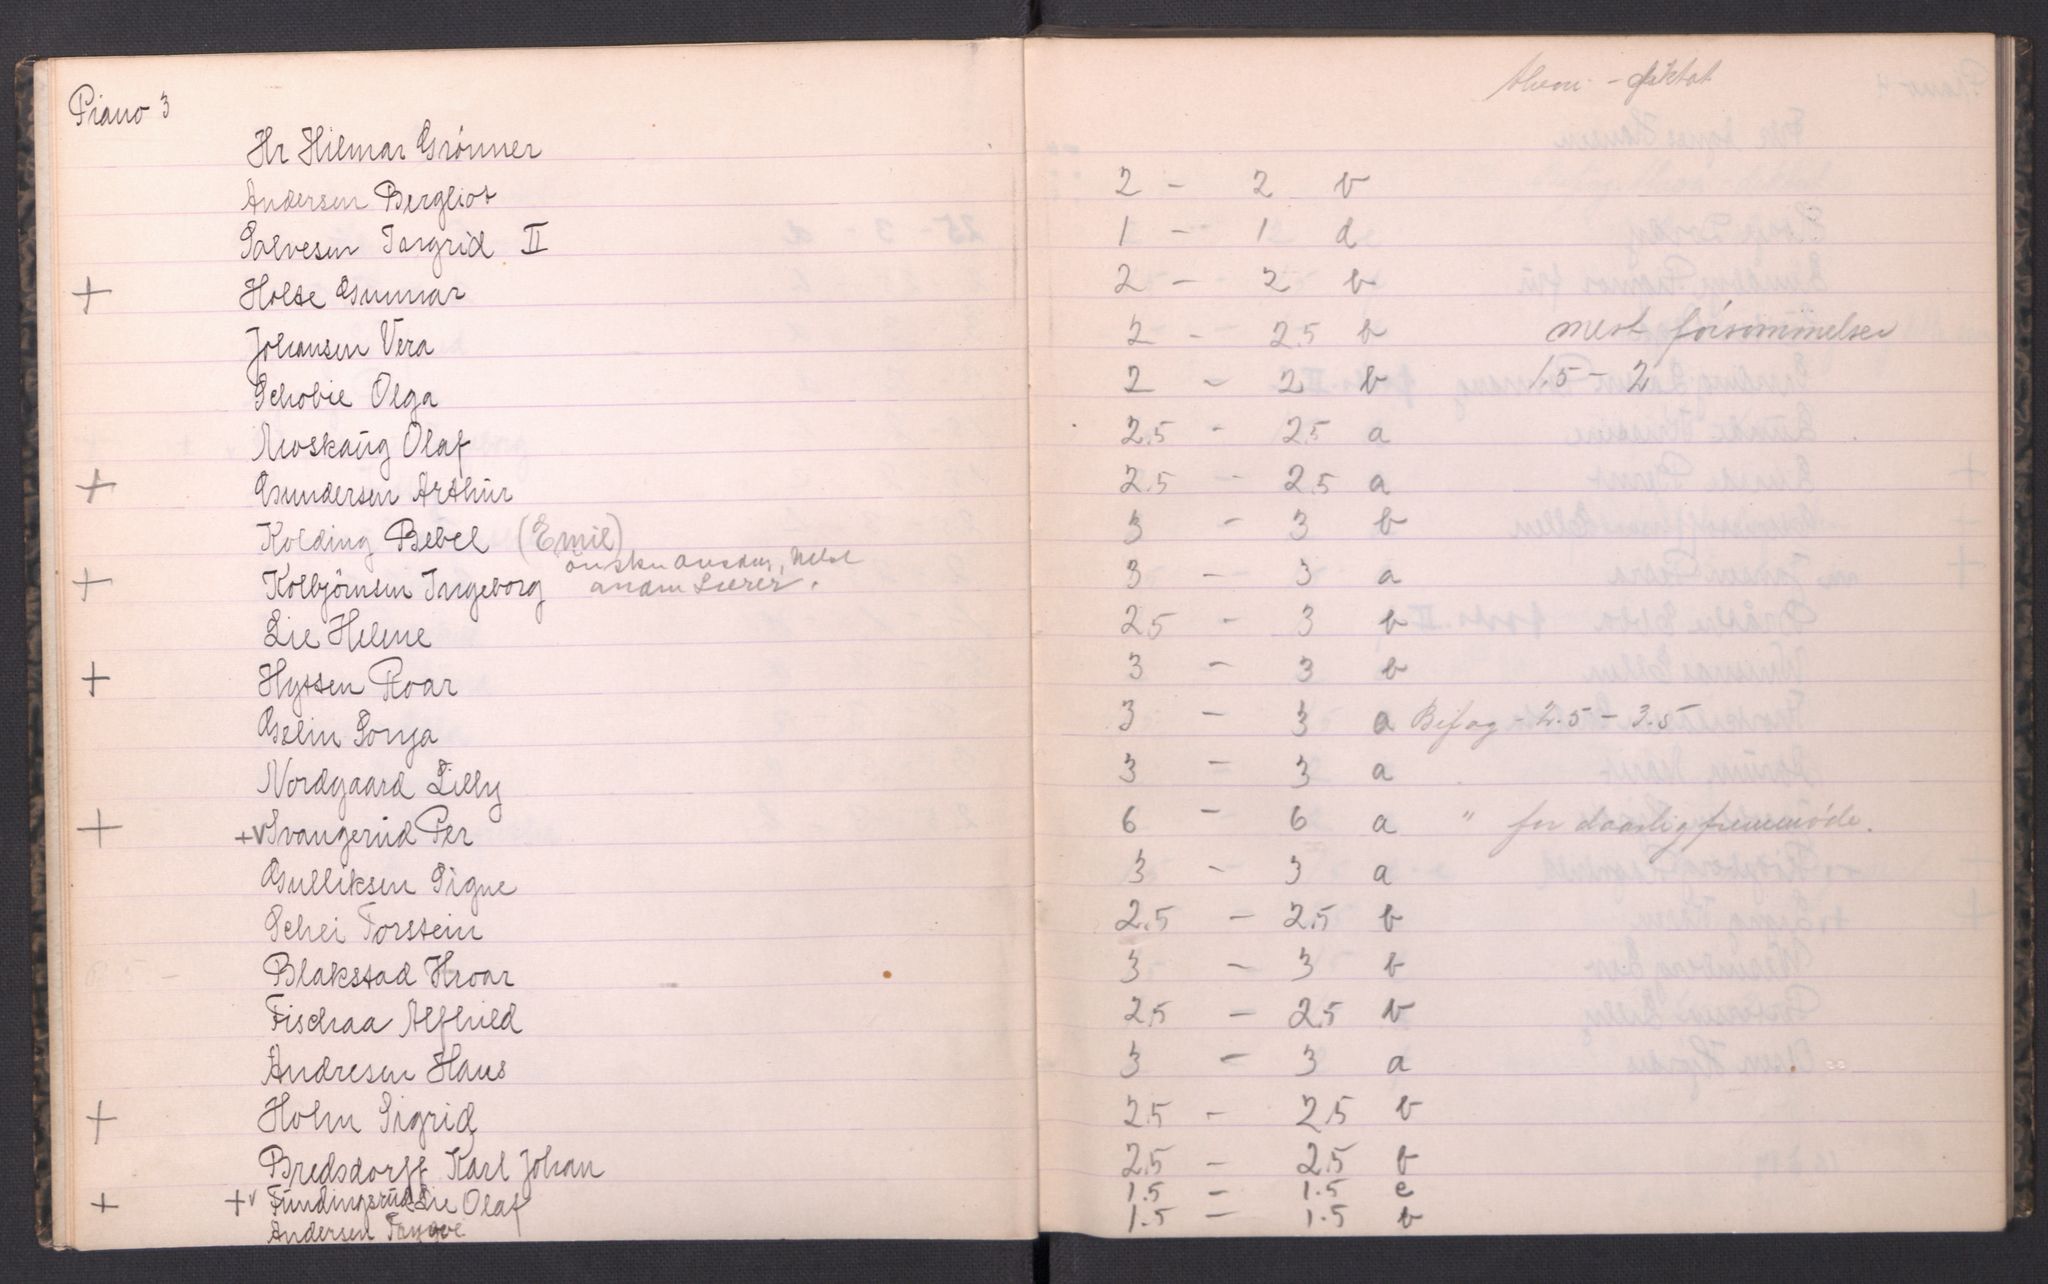 Piano 3
Hr Hilmar Grönner
Andersen Bergliot
Salvesen Ingrid II
+ Holte Gunnar
Johansen Vera
Schobie Olga
Moskaug Olaf
+ Gundersen Arthur
Kolding Bebel (Emil)
önsker
+ Kolbjörnsen Ingeborg
Lie Helene
+ Hyssen Roar
Gslin Sonja
Nordgaard Lilly
+ +v Svangerud Per
Gulliksen Signe
Schei Torstein
Blakstad Hroar
Fischaa Alfhild
Andresen Hans
+ Holm Sigrid
Bredsdorff Karl Johan
+ +v Fundingsrud Lie Olaf
Andersen Trygve
- diktat
2 - 2 b
1 - 1 d
2 - 2 b
2 - 2.5 b mest forsömmelser
2 - 2 b 1.5 - 2
2.5 - 2.5 a
2.5 - 2.5 a
3 - 3 b
3 - 3 a
2.5 - 3 b
3 - 3 b
3 - 3 a Bifag - 2.5 - 3.5
3 - 3 a
6 - 6 a " for daarlig fremmöde.
3 - 3 a
2.5 - 2.5 b
3 - 3 b
2.5 - 2.5 b
3 - 3 a
2.5 - 2.5 b
2.5 - 2.5 b
1.5 - 1.5 c
1.5 - 1.5 b